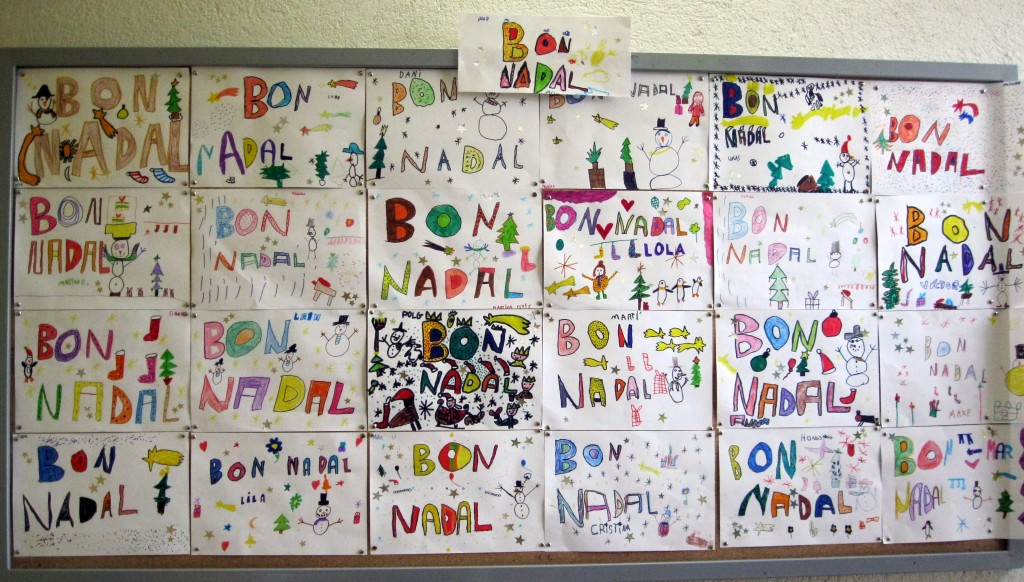 BON
NADAL
BON
NADAL
BON
NADAL
DANI
BON
NADAL
BON
NADAL
BON
NADAL
BON
NADAL
BON
NADAL
BON
NADAL
BON
NADAL
BON NADAL
LOLA
BON
NADAL
BON
NADAL
BON
NADAL
BON
NADAL
POLO
BON
NADAL
MARTÍ
BON
NADAL
BON
NADAL
BON
NADAL
BON
NADAL
BON NADAL
LILA
BON
NADAL
BON
NADAL
CRISTINA
BON
NADAL
BON
MAR
NADAL